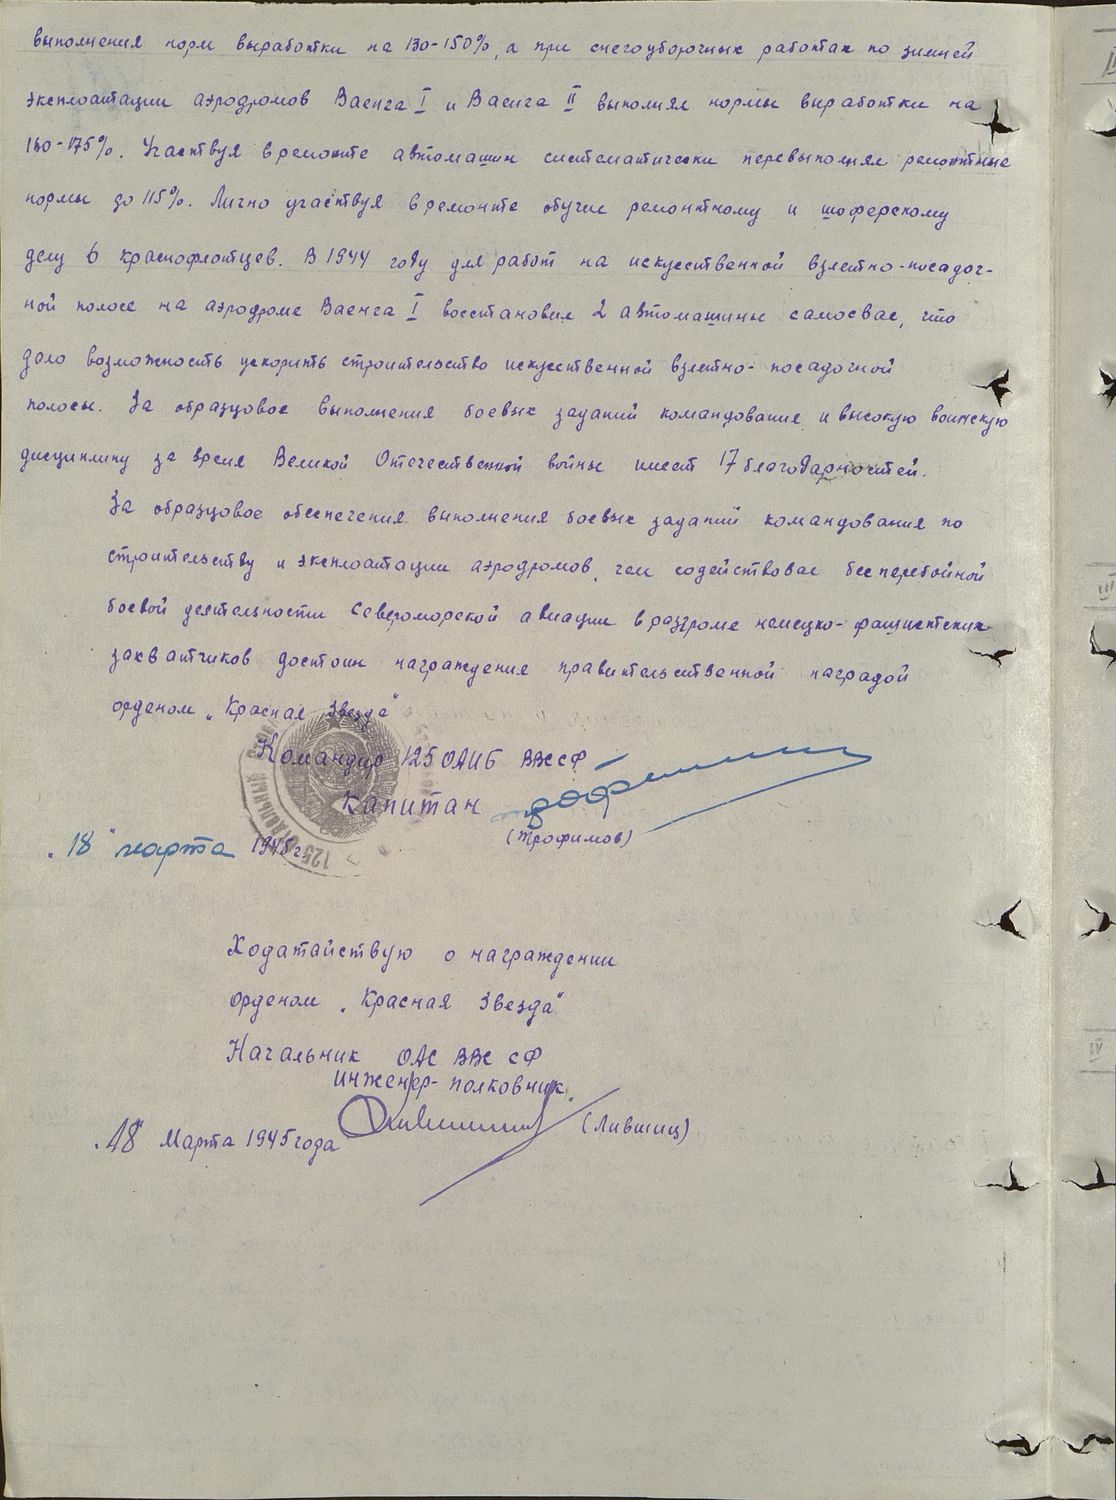 выполнения норм выработки на 130-150%, а при снегоуборочных работах по зимней
эксплоатации аэродромов Ваенга I и Ваенга II выполнял нормы выработки на
160-175%. Участвуя в ремонте автомашин систематически перевыполнял ремонтные
нормы до 115%. Лично участвуя в ремонте обучил ремонтному и шоферскому
делу 6 краснофлотцев. В 1944 году для работ на искусственной взлетно-посадоч-
ной полосе на аэродроме Ваенга I восстановил 2 автомашины самосвал, что
дало возможность ускорить строительство искусственной взлетно-посадочной
полосы. За образцовое выполнения боевых заданий командования и высокую воинскую
дисциплину за время Великой Отечественной войны имеет 17 благодарностей.
За образцовое обеспечения выполнения боевых заданий командования по
строительству и эксплоатации аэродромов, чем содействовал бесперебойной
боевой деятельности Североморской авиации в разгроме немецко-фашистских
захватчиков достоин награждения правительственной наградой
орденом „Красная Звезда"
Командир 125 ОАИБ ВВС СФ
Капитан
(Трофимов)
„18" марта 1945 г.
125 ОТДЕЛЬНЫЙ
Ходатайствую о награждении
орденом „Красная Звезда"
Начальник ОАС ВВС СФ
инженер-полковник.
(Лившиц)
„18" Марта 1945 года
III
IV